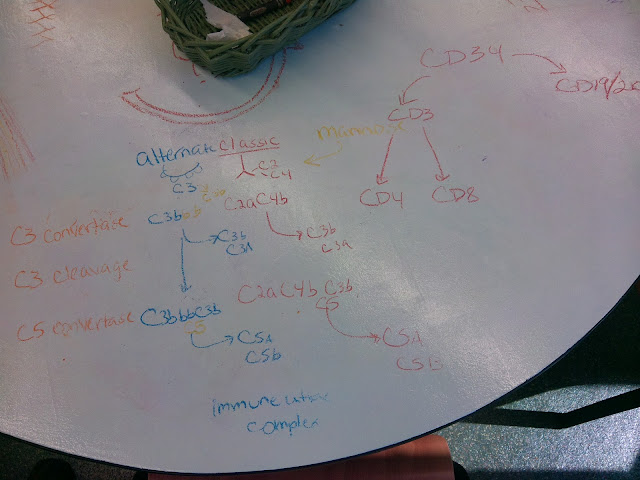 CD34
CD3
CD4
CD8
Mannose
alternate
Classic
C2
C4
C3
C3b
C2aC4b
C3 convertase
C3b
C3A
C3b
C3a
C3 cleavage
C2aC4b C3b
C5 convertase
C3bbbC3b
C5
C5A
C5b
C5A
C5B
immune
complex